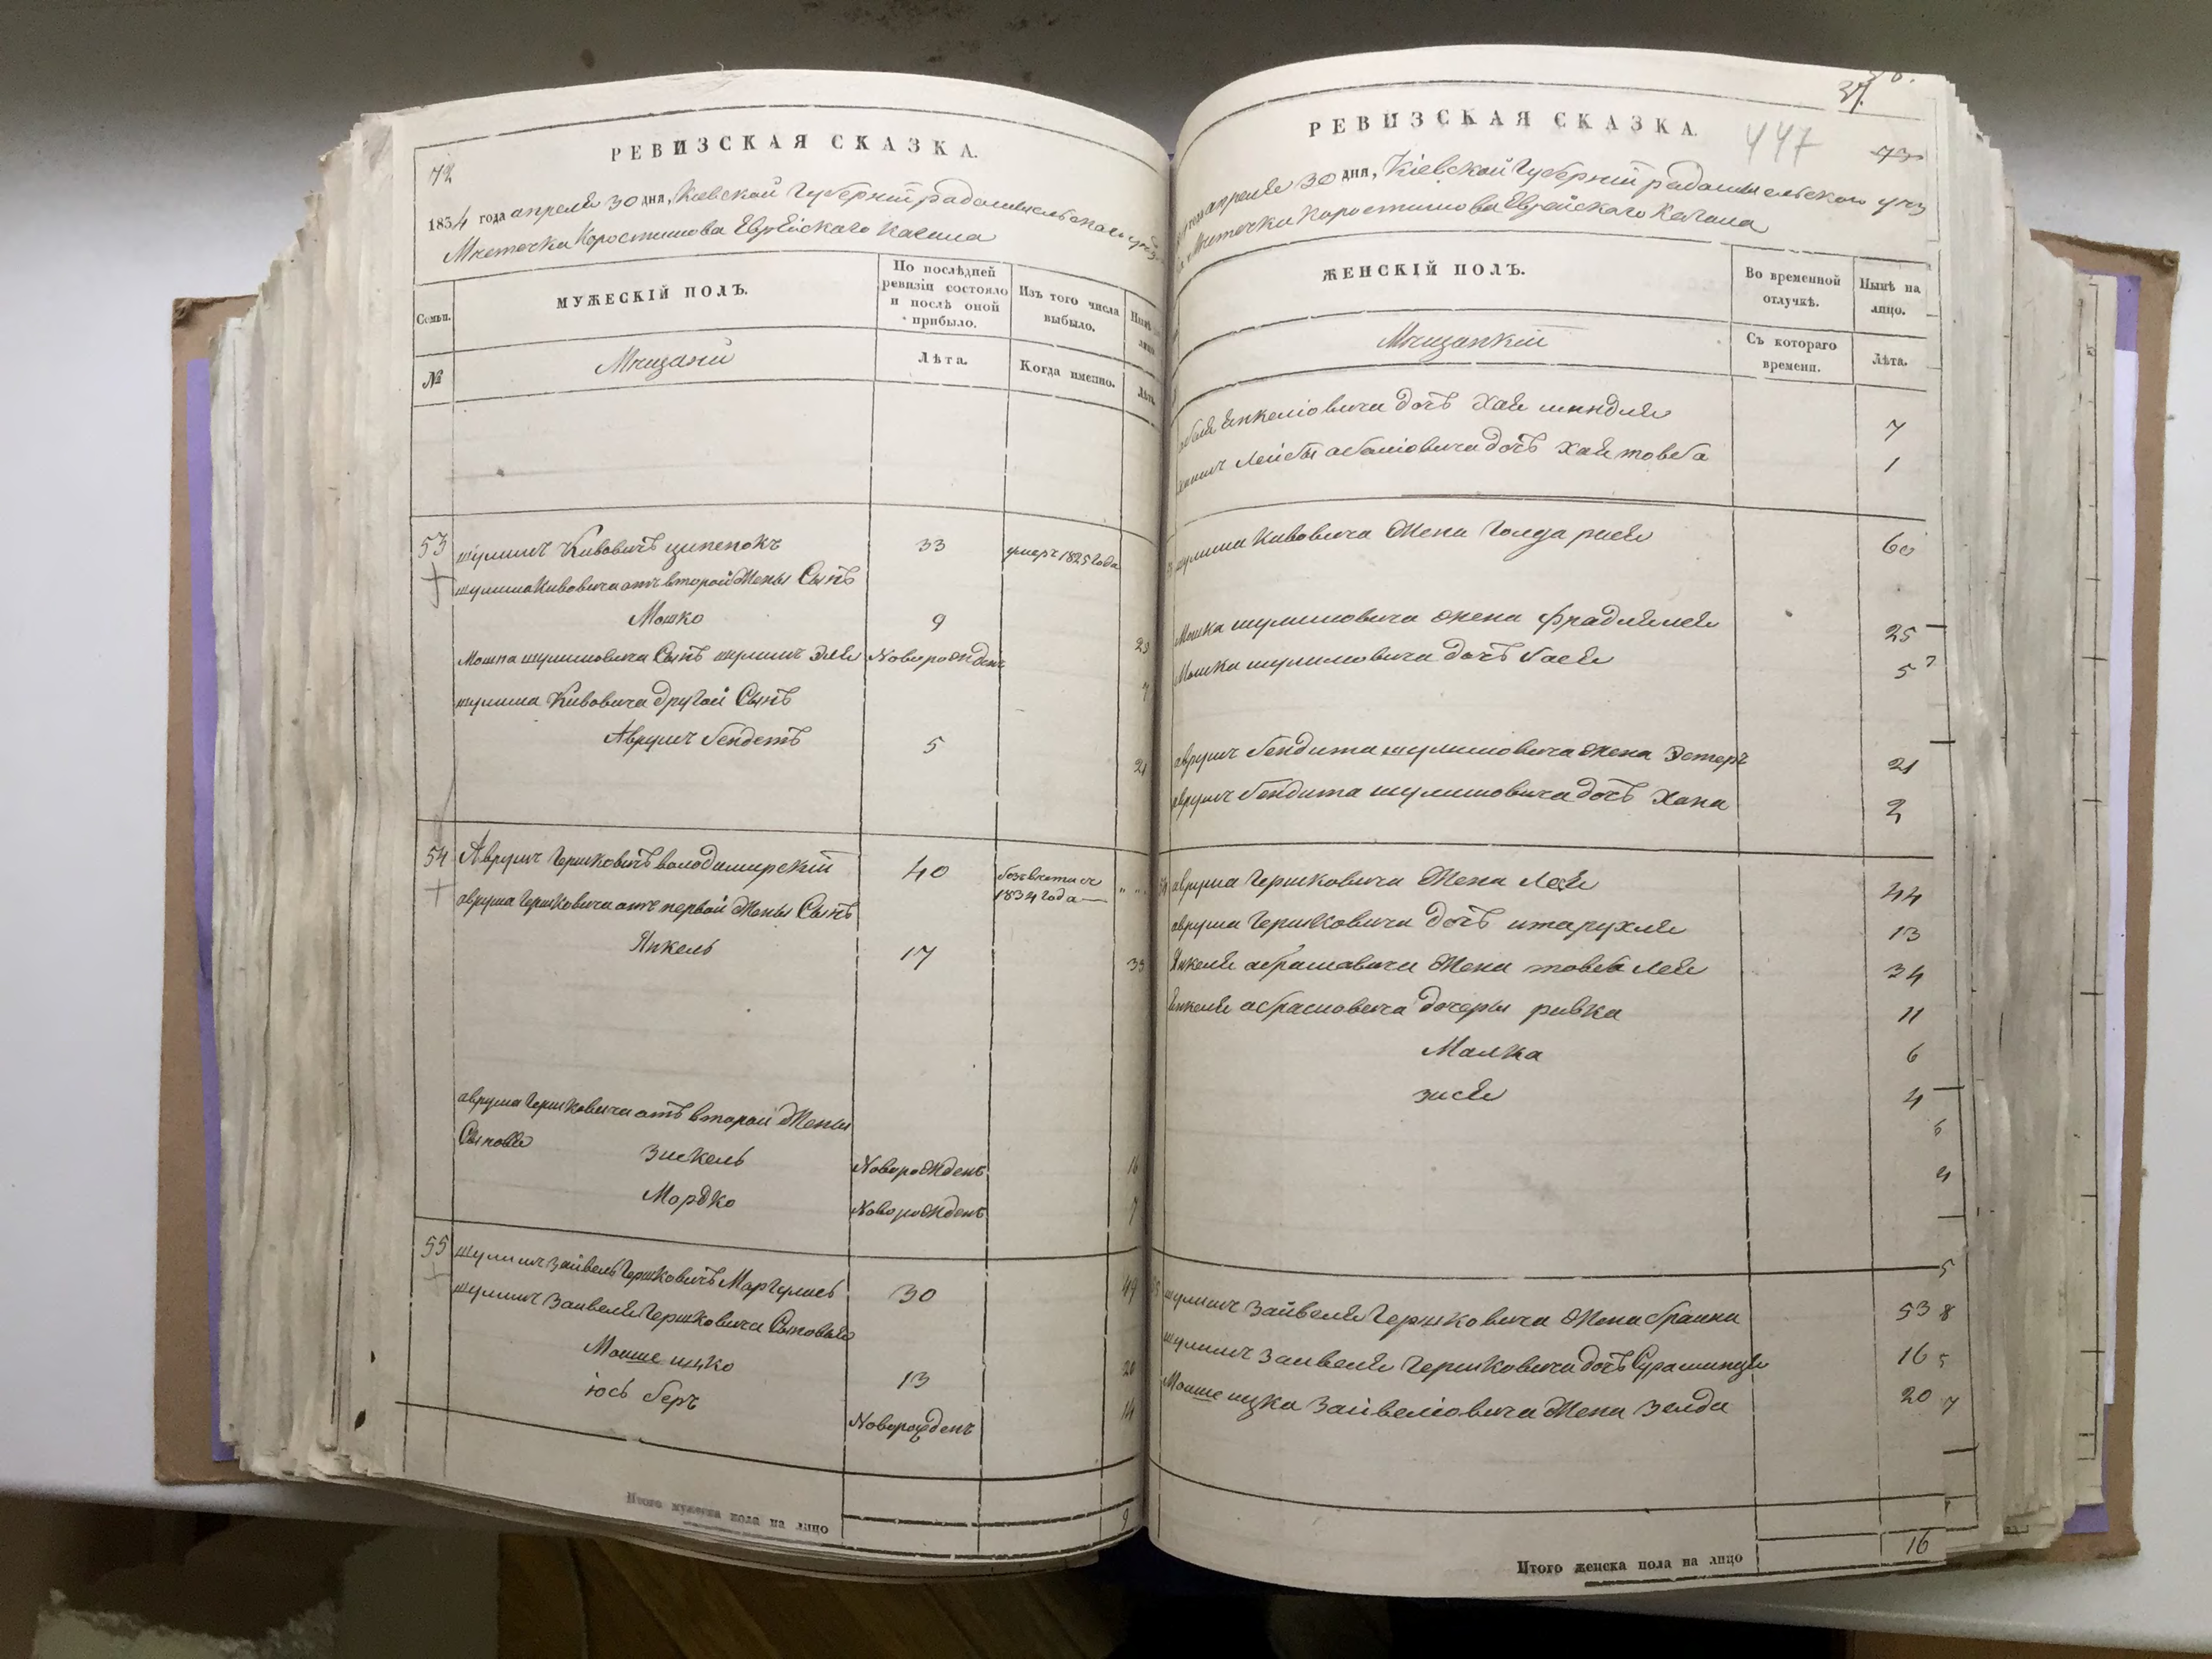 РЕВИЗСКАЯ СКАЗКА.
72
1834 года апреля 30 дня, Киевской Губернiи радомысльского
Местечка Коростишова Еврейскаго Кагала
Семьи.
МУЖЕСКIЙ ПОЛЪ.
По послѣдней ревизiи состояло и послѣ оной прибыло.
Изъ того числа выбыло.
№
Мещани
Лѣта.
Когда именно.
Лѣта
53 шулимъ Кивовичъ ципенокъ 33 умеръ 1825 года
шулима Кивовича отъ второй Жены Сынъ
Мошко 9
Мошка шулимовича Сынъ шулимъ Новорожденъ 7
шулима Кивовича другой Сынъ
Аврумъ бендетъ 5 21
54 Аврумъ Гершковичъ володимирскiй 40 1834 года
аврума Гершковича отъ первой Жены Сынъ
Янкель 17 33
аврума Гершковича отъ второй Жены
Сыновья Зискель Новорожденъ 16
Мордко Новорожденъ 7
55 шулимъ Зайвель Гершковичъ Маргулисъ 30 49
шулимъ Зайвеля Гершковича Сыновья
Мошше ицко 13 20
iось беръ Новорожденъ 14
Итого мужеска пола на лицо 9
37.
РЕВИЗСКАЯ СКАЗКА.
447
73
апреля 30 дня, Кiевской Губернiй радомысльского
Местечка Коростишова Еврейского Кагала
ЖЕНСКIЙ ПОЛЪ.
Во временной отлучкѣ.
Нынѣ на лицо.
Мещанкiи
Съ котораго времени.
Лѣта.
Янкелiовича дочъ Хая миндля 7
Лейбы абомiовича дочъ Хая товба 1
шулима Кивовича Жена Голда рися 60
Мошка шулимовича жена фрадля лея 25
Мошка шулимовича дочъ бася 5
аврумъ бендита шулимовича жена Эстеръ 21
аврумъ бендита шулимовича дочъ Хана 2
аврума Гершковича Жена Лея 44
аврума Гершковича дочъ итарухля 13
Янкеля абрамовича Жена товба Лея 34
Янкеля абрамовича дочеры ривка 11
Малка 6
зися 4
шулимъ Зайвеля Гершковича Жена браина 53
шулимъ Зайвеля Гершковича дочъ Сураминця 16
Мошше ицка Зайвелiовича Жена Зелда 20
Итого женска пола на лицо 16